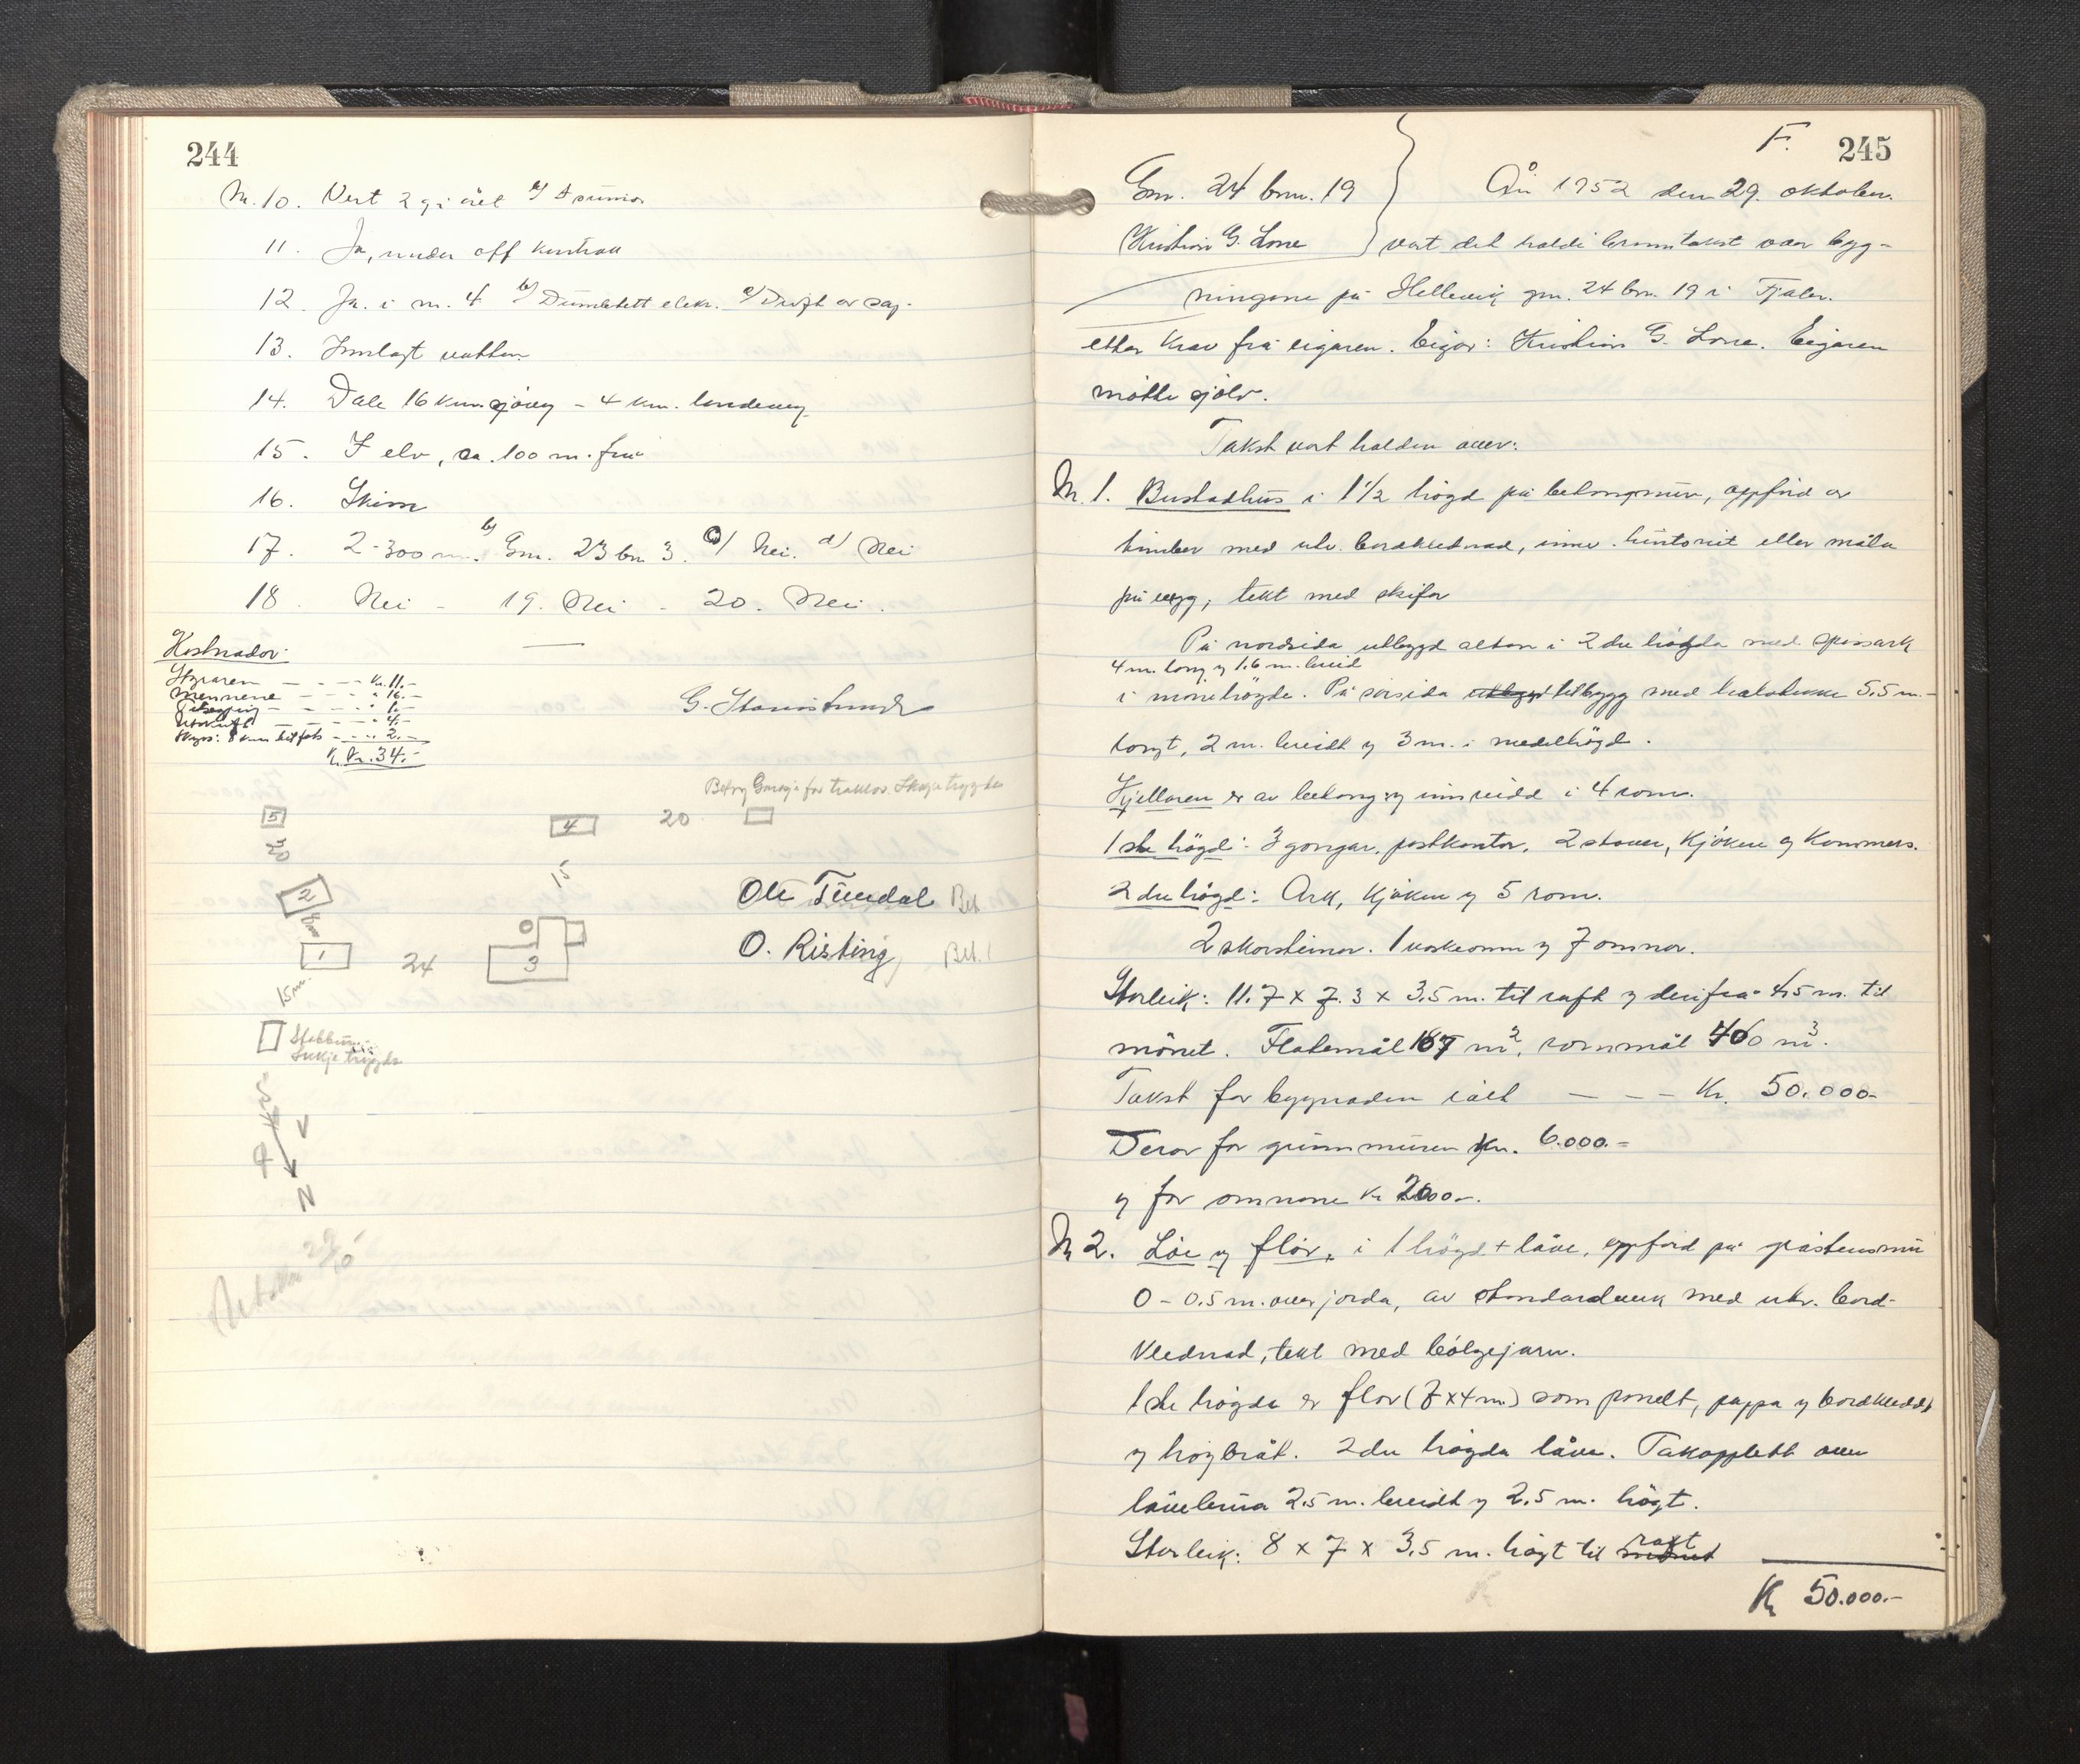 244
N. 10. Vert 2 g i året b/
11. Ja, under off kontroll
12. Ja. i m. 4 b/ elekr. c/ Drift av sag.
13. Innlagt vatten
14. Dale 16 km. sjöveg - 4 km. landeveg
15. I elv, ca. 100 m. frå
16. Skina
17. 2-300 m. b/ Gm. 23 bn 3. c/ Nei. d/ Nei
18. Nei - 19. Nei - 20. Nei.
Kostnader:
Styraren - - - Kr. 11.-
Mennene - - - " 16.-
- - - " 1.-
Utskrift - - - " 4.-
Skyss: 8 km - - - " 2.-
Kr. 34.-
G.
Bet og Garasje for traktor. Skogetrygda
5
4
20
20
15
2
Ole Tundal Bet
O. Risting Bet.
1
24
3
15 m.
Stabbur
N
Betalt 29/10
F. 245
Gnr. 24 bnr. 19 År 1952 den 29. oktober.
Kristian G. Lone vart det haldi branntakst over bygg-
ningane på Hellevik gnr. 24 bn. 19 i Fjaler.
etter krav frå eigaren. Eigar: Kristian G. Lone. Eigaren
møtte sjölv.
Takst vart halden over:
N. 1. Bustadhus i 1 1/2 högd på betongmur, oppförd av
timber med utv. bordklednad, innv. huntonit eller måla
på vegg, tekt med skifer
På nordsida utbygd altan i 2du högda med spissark
4 m. lang og 1.6 m. breid
i mönehögde. På sörsida utbygd tilbygg med 5.5 m.
langt, 2 m. breidt og 3 m. i medelhögd.
Kjellaren er av betong og innreidd i 4 rom.
1ste högd: 3 gongar, postkontor, 2 stover, kjöken og kammers.
2du högd: Ark, kjöken og 5 rom.
2 skorsteinar. 1 vaskeomn og 7 omnar.
Storleik: 11.7 x 7.3 x 3.5 m. til raft og derifrå 4.5 m. til
mönet. Flatemål 187 m2, rommål 460 m3.
Takst for bygnaden ialt - - - Kr. 50.000.-
Derav for grunnmuren kr. 6.000.-
og for omnane kr 2000.-
N 2. Löe og flör, i 1 högd + låve, oppförd på gråsteinsmur
0 - 0.5 m. over jorda, av standardverk med utv. bord-
klednad, tekt med bölgejarn.
1ste högda er flor (7 x 4 m.) som panelt, pappa og bordkledd
og högbråt. 2du högda låve. Takopplett over
låvebrua 2.5 m. breidt og 2.5 m. högt.
Storleik: 8 x 7 x 3.5 m. högt til mönet raft
Kr 50.000.-